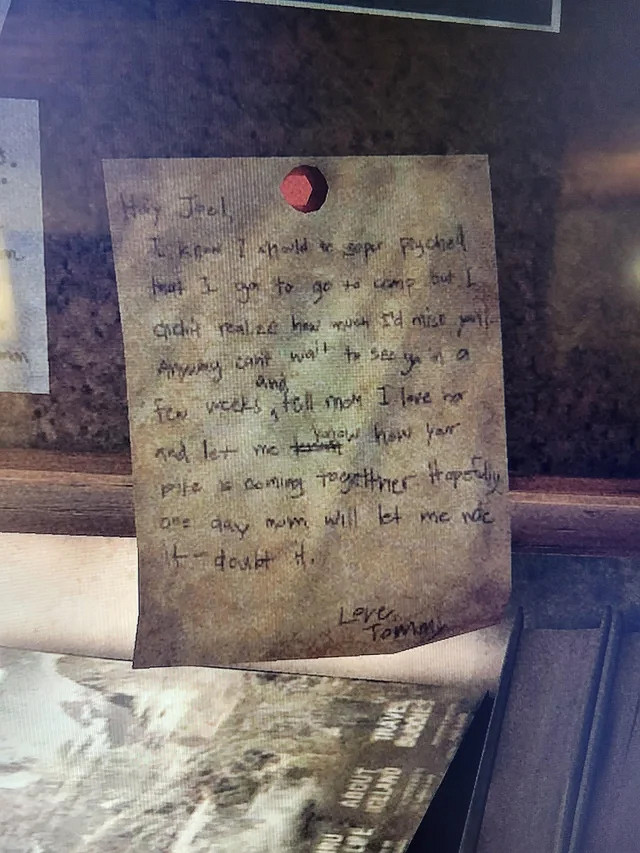 Hey Joel,
I know I should be super psyched
that I got to go to camp but I
didn't realize how much I'd miss you!
Anyway can't wait to see ya in a
few weeks, and tell mom I love her
and let me know how your
bike is coming together Hopefully
one day mom will let me ride
it - doubt it.
Love,
Tommy
TRAVEL
GUIDES
ABOUT